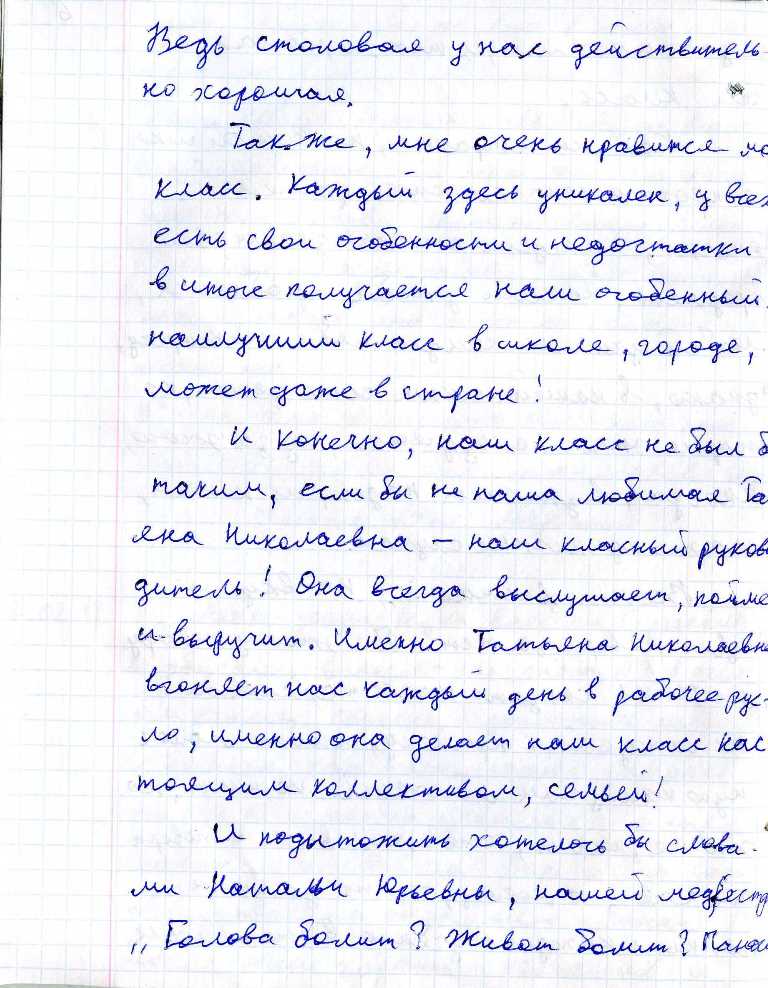 Ведь столовая у нас действитель-
но хорошая.
Также, мне очень нравится мо
класс. Каждый здесь уникален, у всех
есть свои особенности и недостатки
в итоге получается наш особенный
наилучший класс в школе, городе,
может даже в стране!
И конечно, наш класс не был б
таким, если бы не наша любимая Та
яна Николаевна – наш класный руково
дитель! Она всегда выслушает, пойме
и выручит. Именно Татьяна Николаевна
вгоняет нас каждый день в рабочее рус-
ло, именно она делает наш класс нас
тоящим коллективом, семьей!
И подытожить хотелось бы слова-
ми Натальи Юрьевны, нашей медсест
„Голова болит? Живот болит?